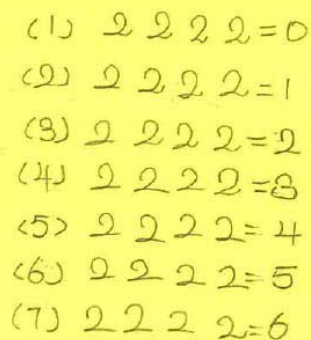 (1) 2 2 2 2 = 0
(2) 2 2 2 2 = 1
(3) 2 2 2 2 = 2
(4) 2 2 2 2 = 3
(5) 2 2 2 2 = 4
(6) 2 2 2 2 = 5
(7) 2 2 2 2 = 6